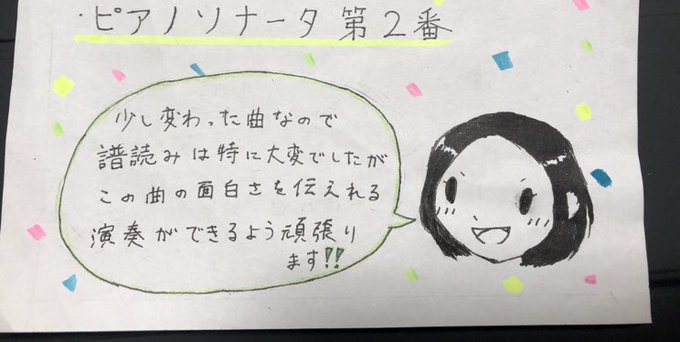 ・ピアノソナータ第2番
少し変わった曲なので
譜読みは特に大変でしたが
この曲の面白さを伝えれる
演奏ができるよう頑張り
ます!!